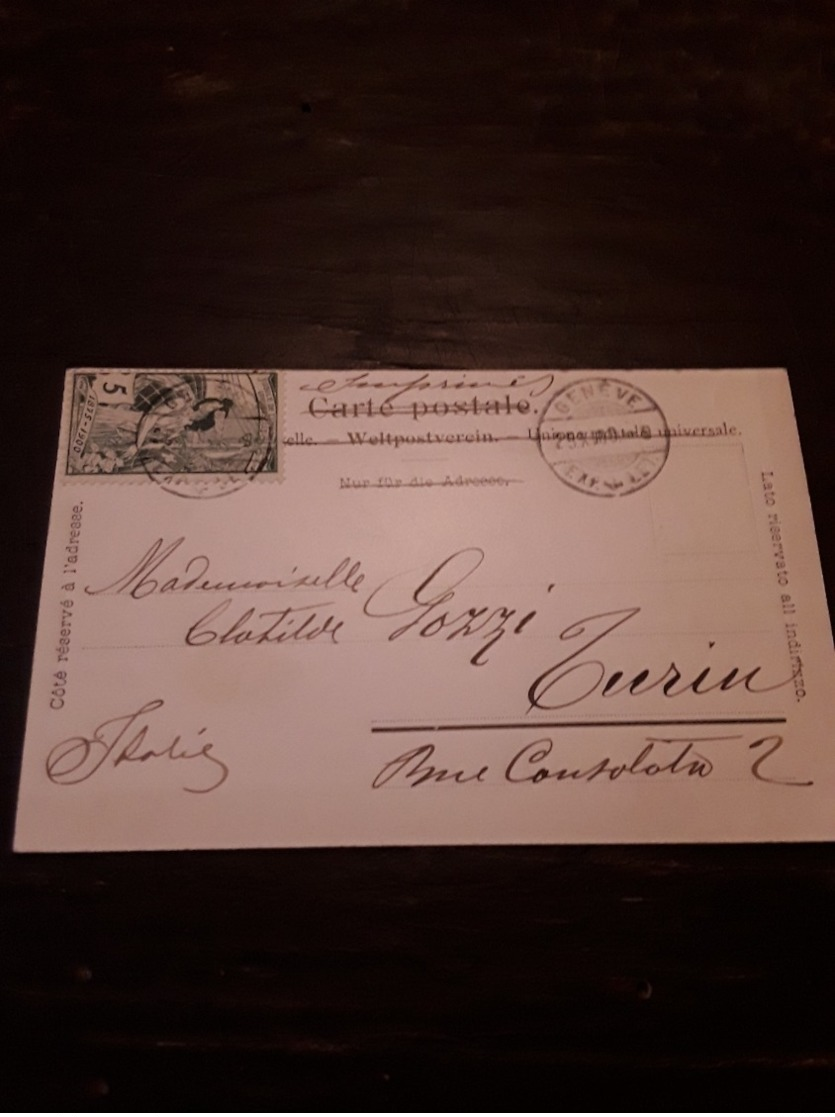 Imprimés
Carte postale.
selle. — Weltpostverein. — Unione postale universale.
Nur für die Adresse.
5
1875-1900
GENÈVE
Côté réservé à l'adresse.
Lato riservato all indirizzo.
Mademoiselle
Clotilde Gozzi
Turin
Rue Consolata 2
Italie